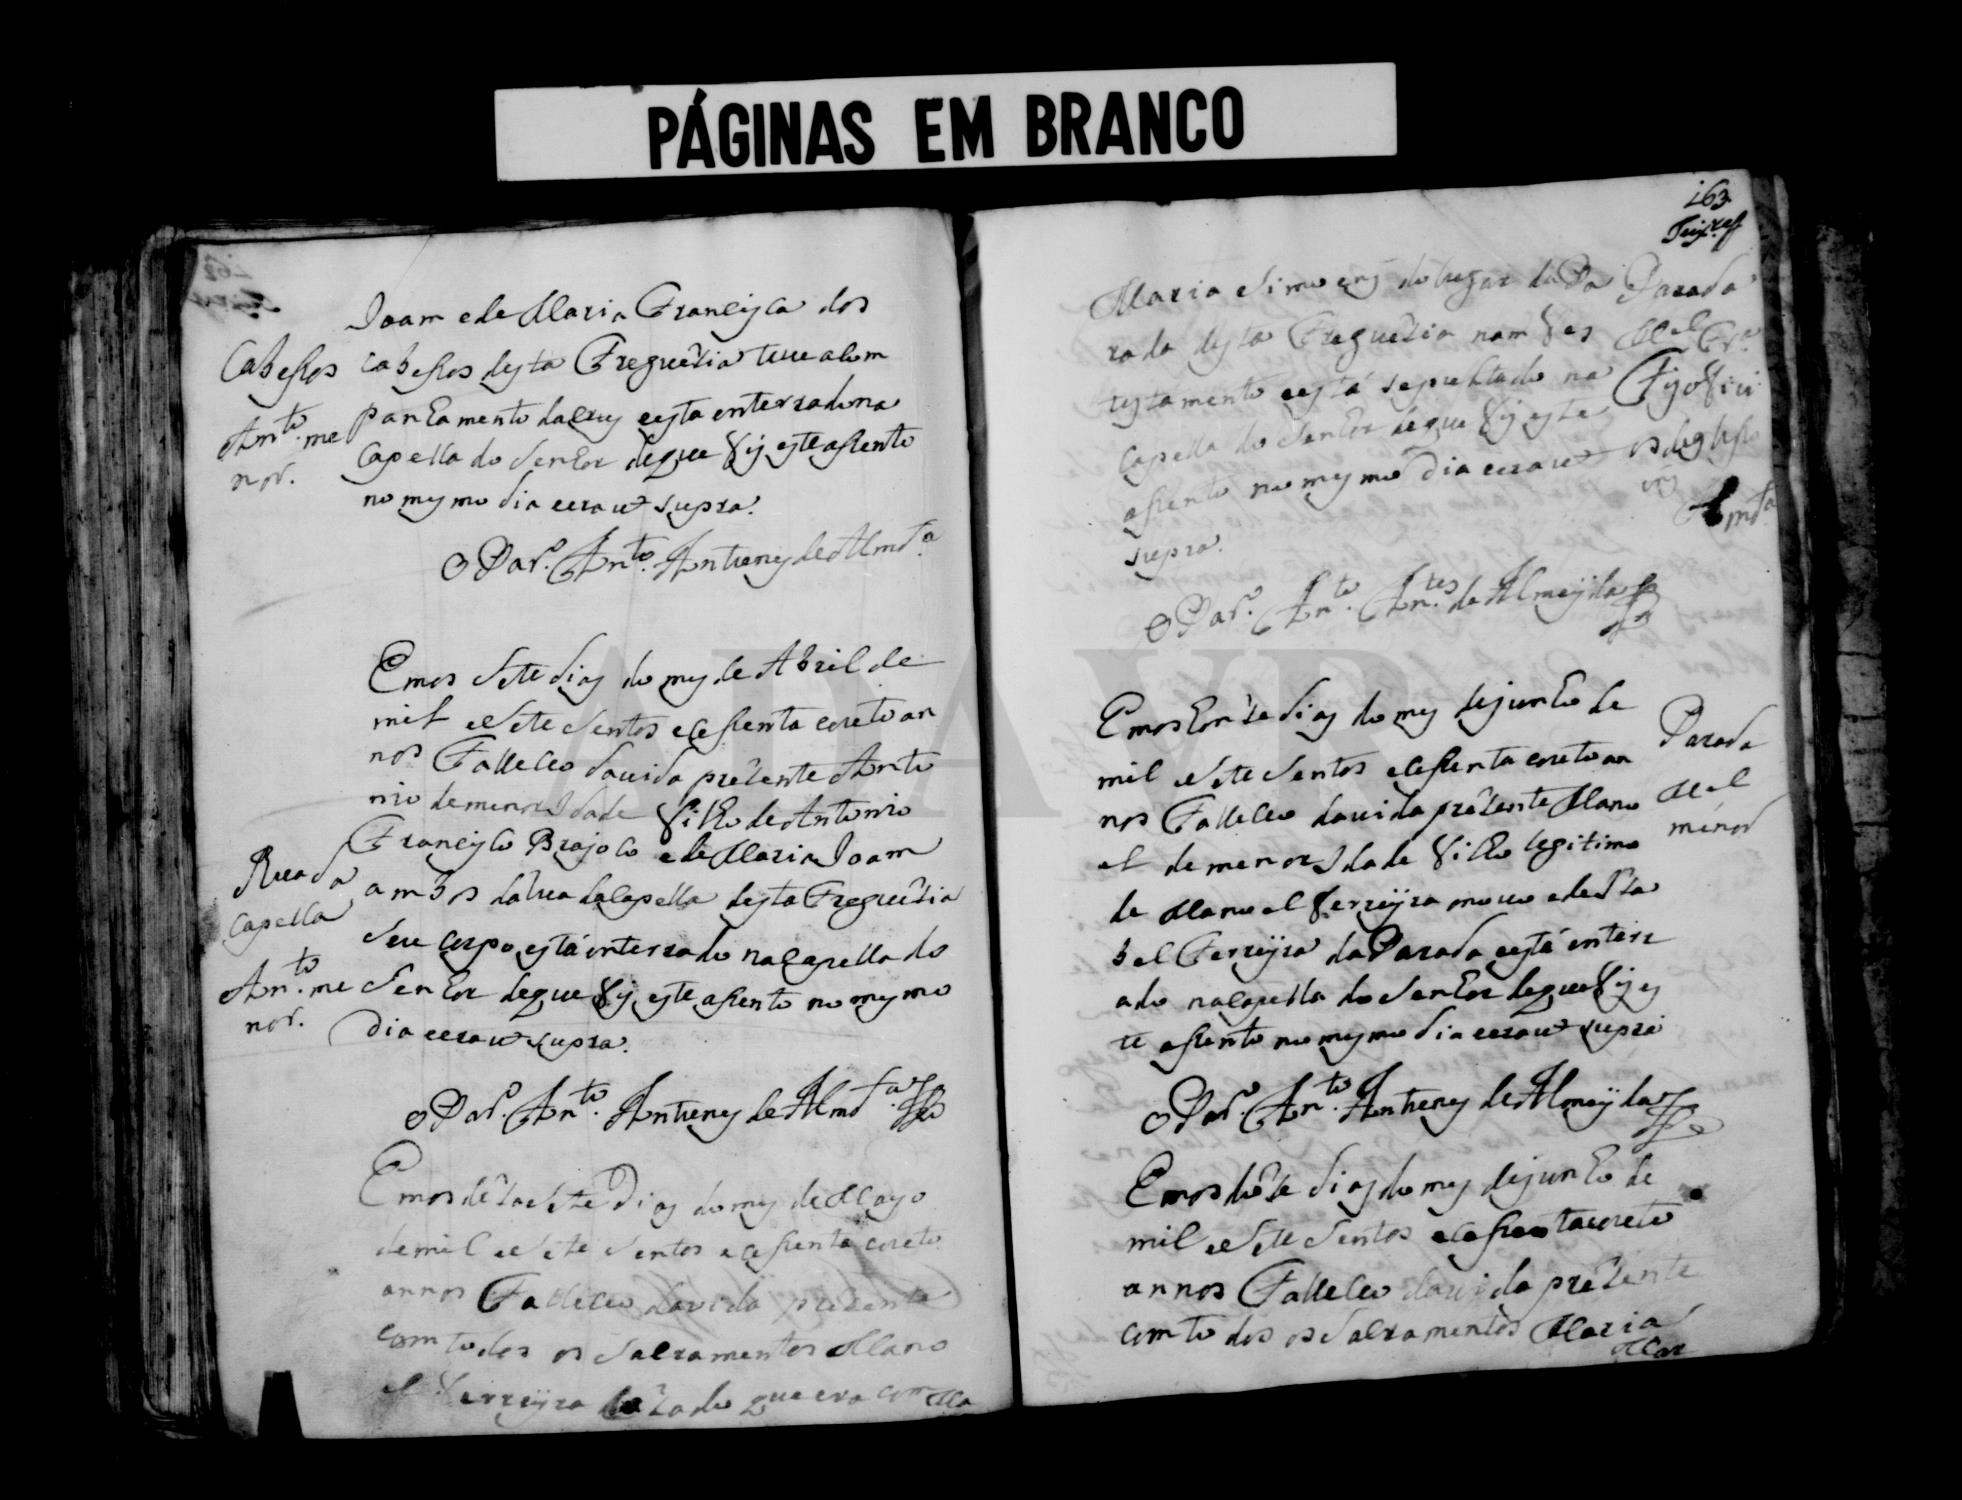 PÁGINAS EM BRANCO
Joam e de Maria Francisca dos
Cabessos
cabessos desta Freguezia teve acom
panhamento da crus e esta enterrado na
Ant.to me
nor.
Capella do Senhor de que fis este assento
no mesmo dia e era ut supra.
O Par.o Ant.to Antunes de Almd.a
Em os Sete dias do mes de Abril de
mil e Sete Sentos e cessenta e oreto an
nos Falleceo da vida prezente Anto
nio de menor Idade filho de Antonio
Francisco Brajoco e de Maria Joam
Rua da
Capella
ambos da rua da Capella desta Freguezia
Seu corpo está interrado na Capella do
Ant.to me
nor.
Senhor de que fis este assento no mesmo
dia e era ut supra.
O Par.o Ant.to Antunes de Almd.a
Em os dezasete Dias do mes de Mayo
de mil e Sete Sentos e cessenta e oreto
annos Falleceo da vida prezente
com todos os Sacramentos Mano
el Ferreyra cazado que era com Ma
163
Maria Simoens do lugar da Pa
rada desta Freguezia nam fes
testamento e está sepultado na
Capella do Senhor de que fis este
assento no mesmo dia e era ut
supra.
Parada
M.el Frr.a
Almd.a
O Par.o Ant.to Ant.es de Almeyda
Em os honze dias do mes de junho de
mil e Sete Sentos e cessenta e oreto an
nos Falleceo da vida prezente Mano
el de menor Idade filho legitimo
de Manoel Ferreyra moco e de Iza
bel Ferreyra da Parada e está enterr
ado na Capella do Senhor de que fis es
te assento no mesmo dia e era ut supra
Parada
M.el
menor
O Par.o Ant.to Antunes de Almeyda
Em os doze dias do mes de junho de
mil e Sete Sentos e cessenta e oreto
annos Falleceo da vida prezente
com todos os Sacramentos Maria
Mar